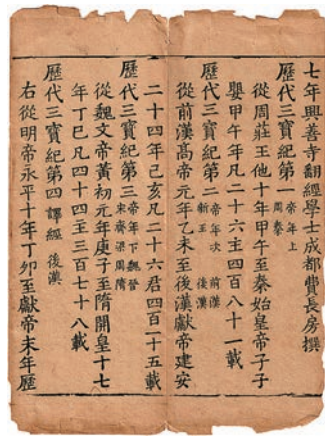 七年興善寺翻經學士成都費長房撰
歷代三寶紀第一帝年上周秦
從周莊王他十年甲午至秦始皇帝子子
嬰甲午年凡二十六主四百八十一載
歷代三寶紀第二帝年次前漢新王後漢
從前漢高帝元年乙未至後漢獻帝建安
二十四年己亥凡二十六君四百二十五載
歷代三寶紀第三帝年下魏晉宋齊梁周隋
從魏文帝黃初元年庚子至隋開皇十七
年丁巳凡四十四主三百七十八載
歷代三寶紀第四譯經後漢
右從明帝永平十年丁卯至獻帝末年歷